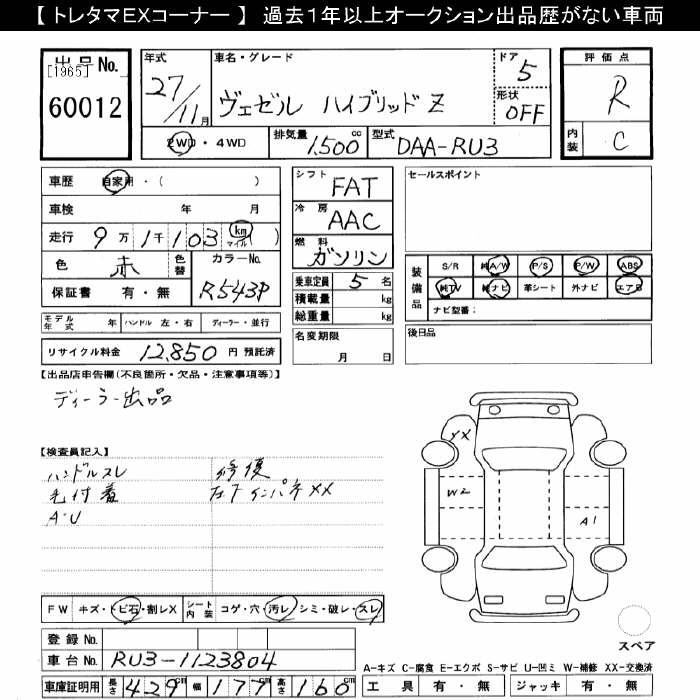 【 トレタマEXコーナー 】 過去1年以上オークション出品歴がない車両
出品No.
[1965]
60012
年式
27/11月
車名・グレード
ヴェゼル ハイブリッド Z
ドア
5
形状
OFF
評価点
R
内装
C
2WD ・ 4WD
排気量
1,500 cc
型式
DAA-RU3
車歴 自家用 ・ ( )
車検 年 月
走行 9万1千103 km マイル ( )
色 赤 色替
カラーNo.
R543P
保証書 有 ・ 無
シフト
FAT
冷房
AAC
燃料
ガソリン
乗車定員 5 名
積載量 kg
総重量 kg
セールスポイント
装備品
S/R 純A/W P/S P/W ABS
純TV 純ナビ 革シート 外ナビ エアB
ナビ型番:
モデル年式 年 ハンドル 左・右 ディーラー・並行
リサイクル料金 12,850 円 預託済
名変期限
月 日
後日品
【出品店申告欄(不良箇所・欠品・注意事項等)】
ディーラー出品
【検査員記入】
ハンドルスレ 修復
毛付着 右Fインパネ XX
A・U
XX
W2
A1
FW キズ・トビ石・割レX シート内装 コゲ・穴・汚レ・シミ・破レ・スレ
登録No.
車台No. RU3-1123804
車庫証明用 長さ 429 cm 幅 177 cm 高さ 160 cm
スペア
A-キズ C-腐食 E-エクボ S-サビ U-凹ミ W-補修 XX-交換済
工具 有 ・ 無 ジャッキ 有 ・ 無